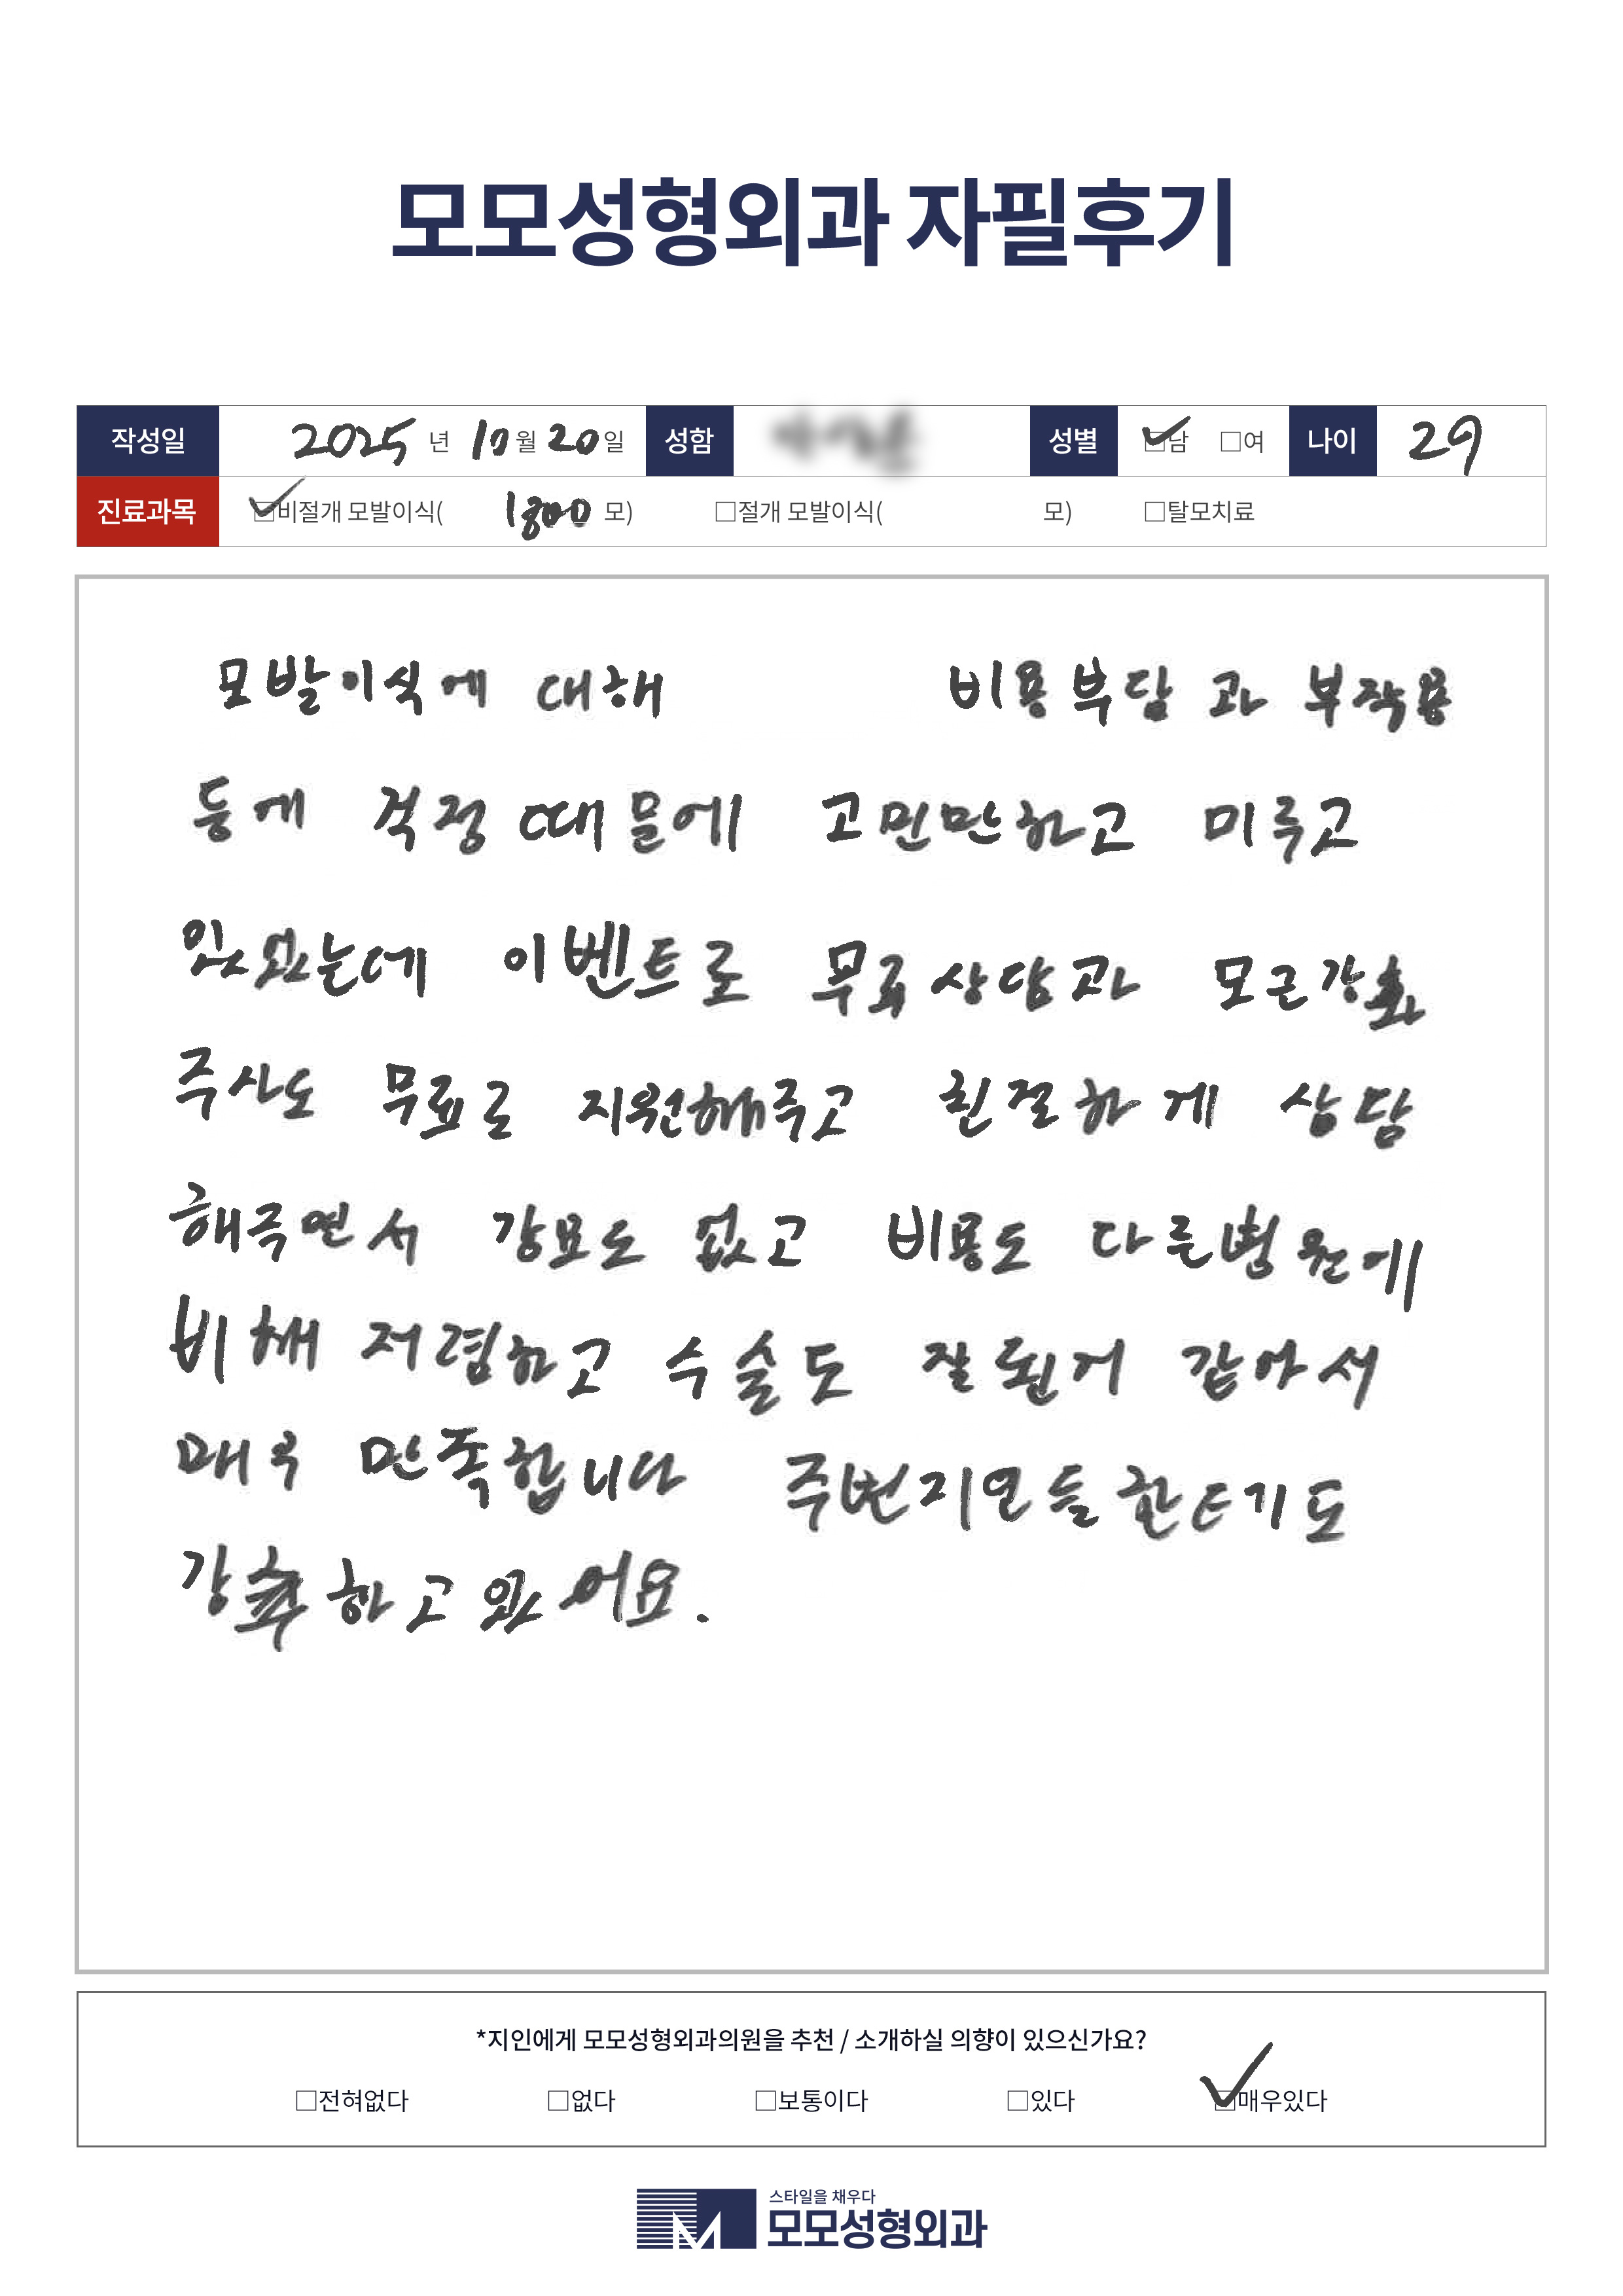 모모성형외과 자필후기
작성일 2025 년 10 월 20 일 성함 성별 ☑남 □여 나이 29
진료과목 ☑비절개 모발이식( 1800 모) □절개 모발이식( 모) □탈모치료
모발이식에 대해 비용부담 과 부작용
등에 걱정 때문에 고민만하고 미루고
있었는데 이벤트로 무료상담과 모근강화
주사도 무료로 지원해주고 친절하게 상담
해주면서 강요도 없고 비용도 다른병원에
비해 저렴하고 수술도 잘된거 같아서
매우 만족합니다 주변지인들한테기도
강추하고 왔어요.
*지인에게 모모성형외과의원을 추천 / 소개하실 의향이 있으신가요?
□전혀없다 □없다 □보통이다 □있다 ☑매우있다
스타일을 채우다
모모성형외과